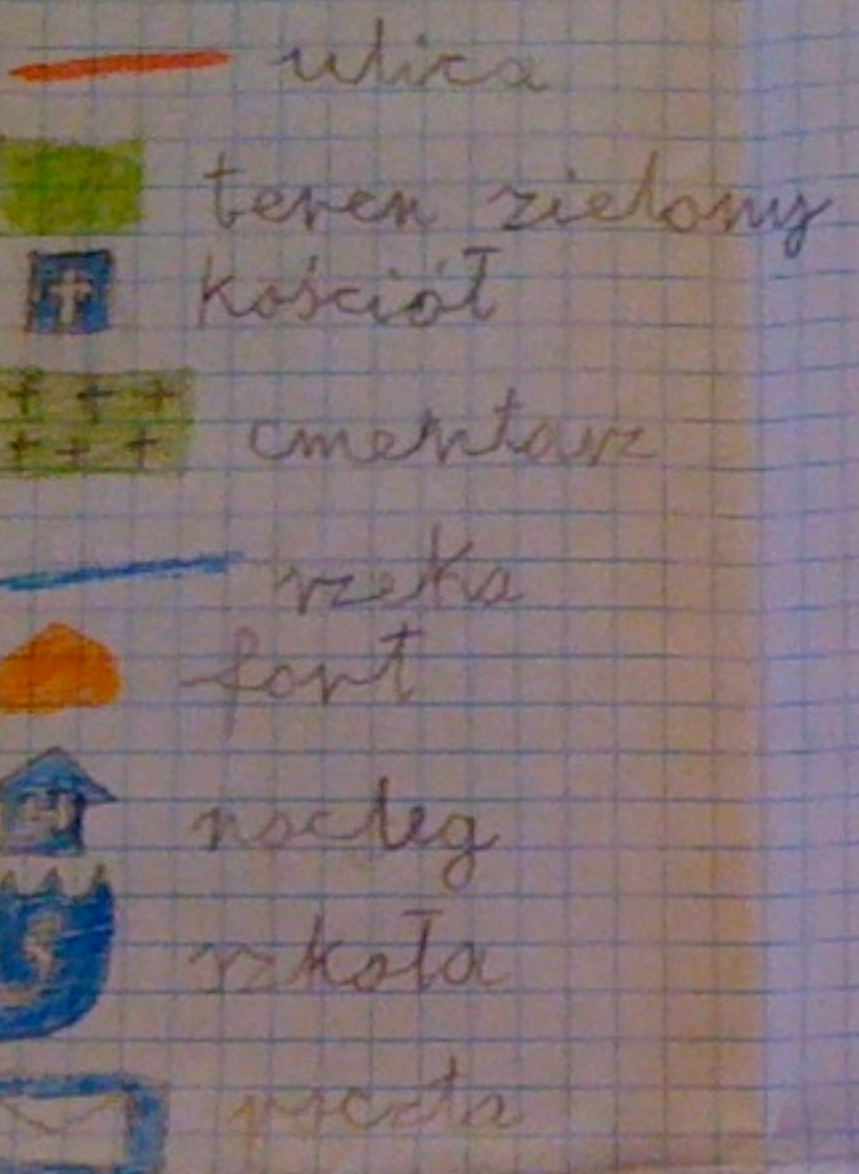 ulica
teren zielony
kościół
cmentarz
rzeka
fort
nocleg
szkoła
poczta